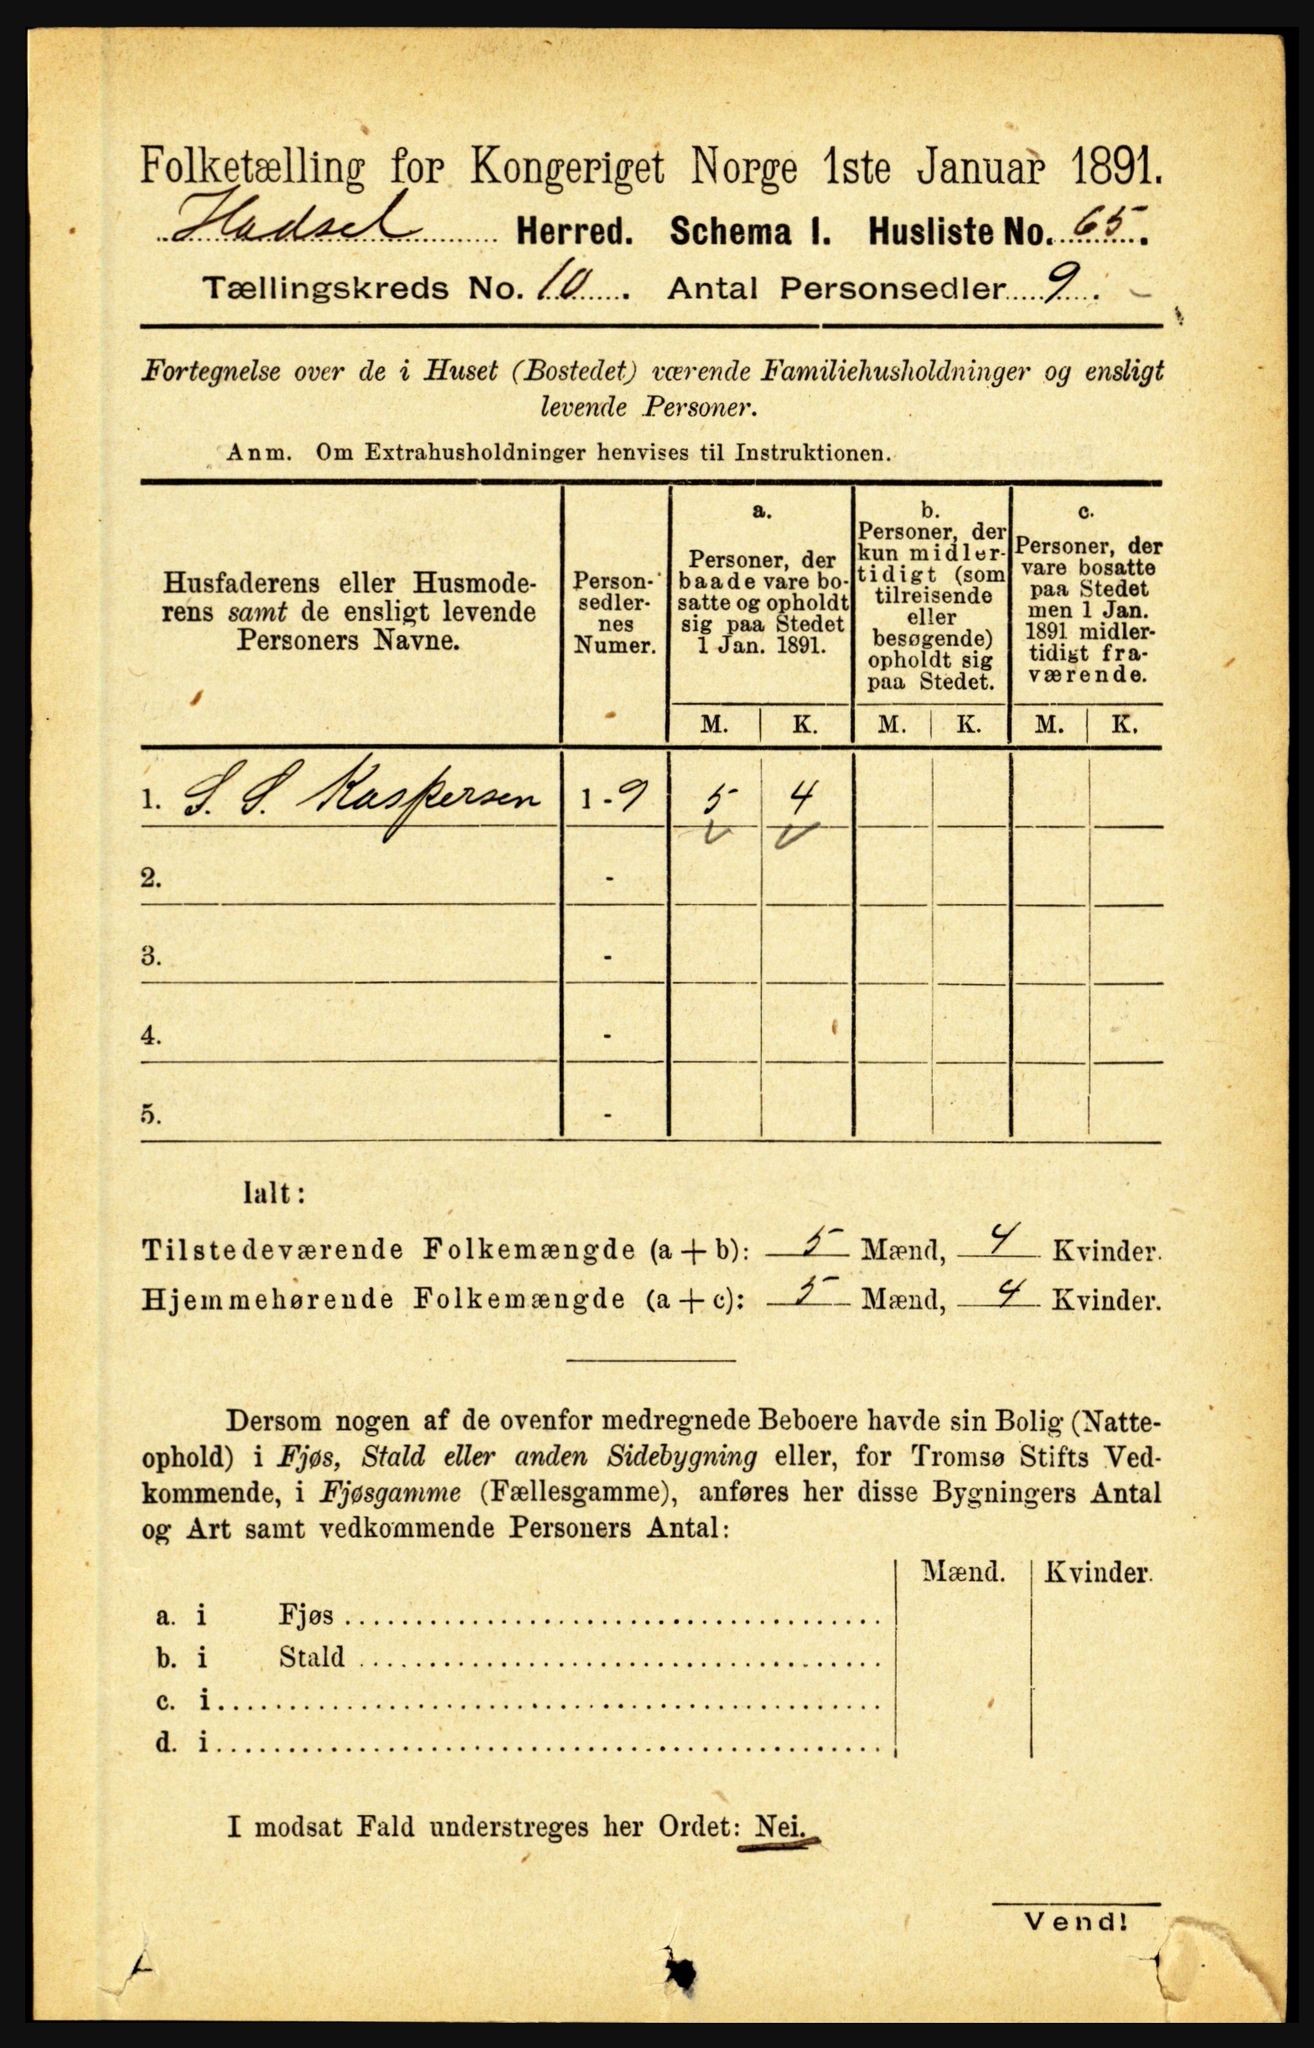 Folketælling for Kongeriget Norge 1ste Januar 1891.
Hadsel Herred. Schema I. Husliste No. 65.
Tællingskreds No. 10. Antal Personsedler 9.
Fortegnelse over de i Huset (Bostedet) værende Familiehusholdninger og ensligt
levende Personer.
Anm. Om Extrahusholdninger henvises til Instruktionen.
Husfaderens eller Husmode-
rens samt de ensligt levende
Personers Navne.
Person-
sedler-
nes
Numer.
a.
Personer, der
baade vare bo-
satte og opholdt
sig paa Stedet
1 Jan. 1891.
b.
Personer, der
kun midler-
tidigt (som
tilreisende
eller
besøgende)
opholdt sig
paa Stedet.
c.
Personer, der
vare bosatte
paa Stedet
men 1 Jan.
1891 midler-
tidigt fra-
værende.
M. K. M. K. M. K.
1. S. S. Kaspersen 1 - 9 5 4
2. -
3. -
4. -
5. -
Ialt:
Tilstedeværende Folkemængde (a + b): 5 Mænd, 4 Kvinder.
Hjemmehørende Folkemængde (a + c): 5 Mænd, 4 Kvinder.
Dersom nogen af de ovenfor medregnede Beboere havde sin Bolig (Natte-
ophold) i Fjøs, Stald eller anden Sidebygning eller, for Tromsø Stifts Ved-
kommende, i Fjøsgamme (Fællesgamme), anføres her disse Bygningers Antal
og Art samt vedkommende Personers Antal:
Mænd. Kvinder.
a. i Fjøs
b. i Stald
c. i
d. i
I modsat Fald understreges her Ordet: Nei.
Vend!